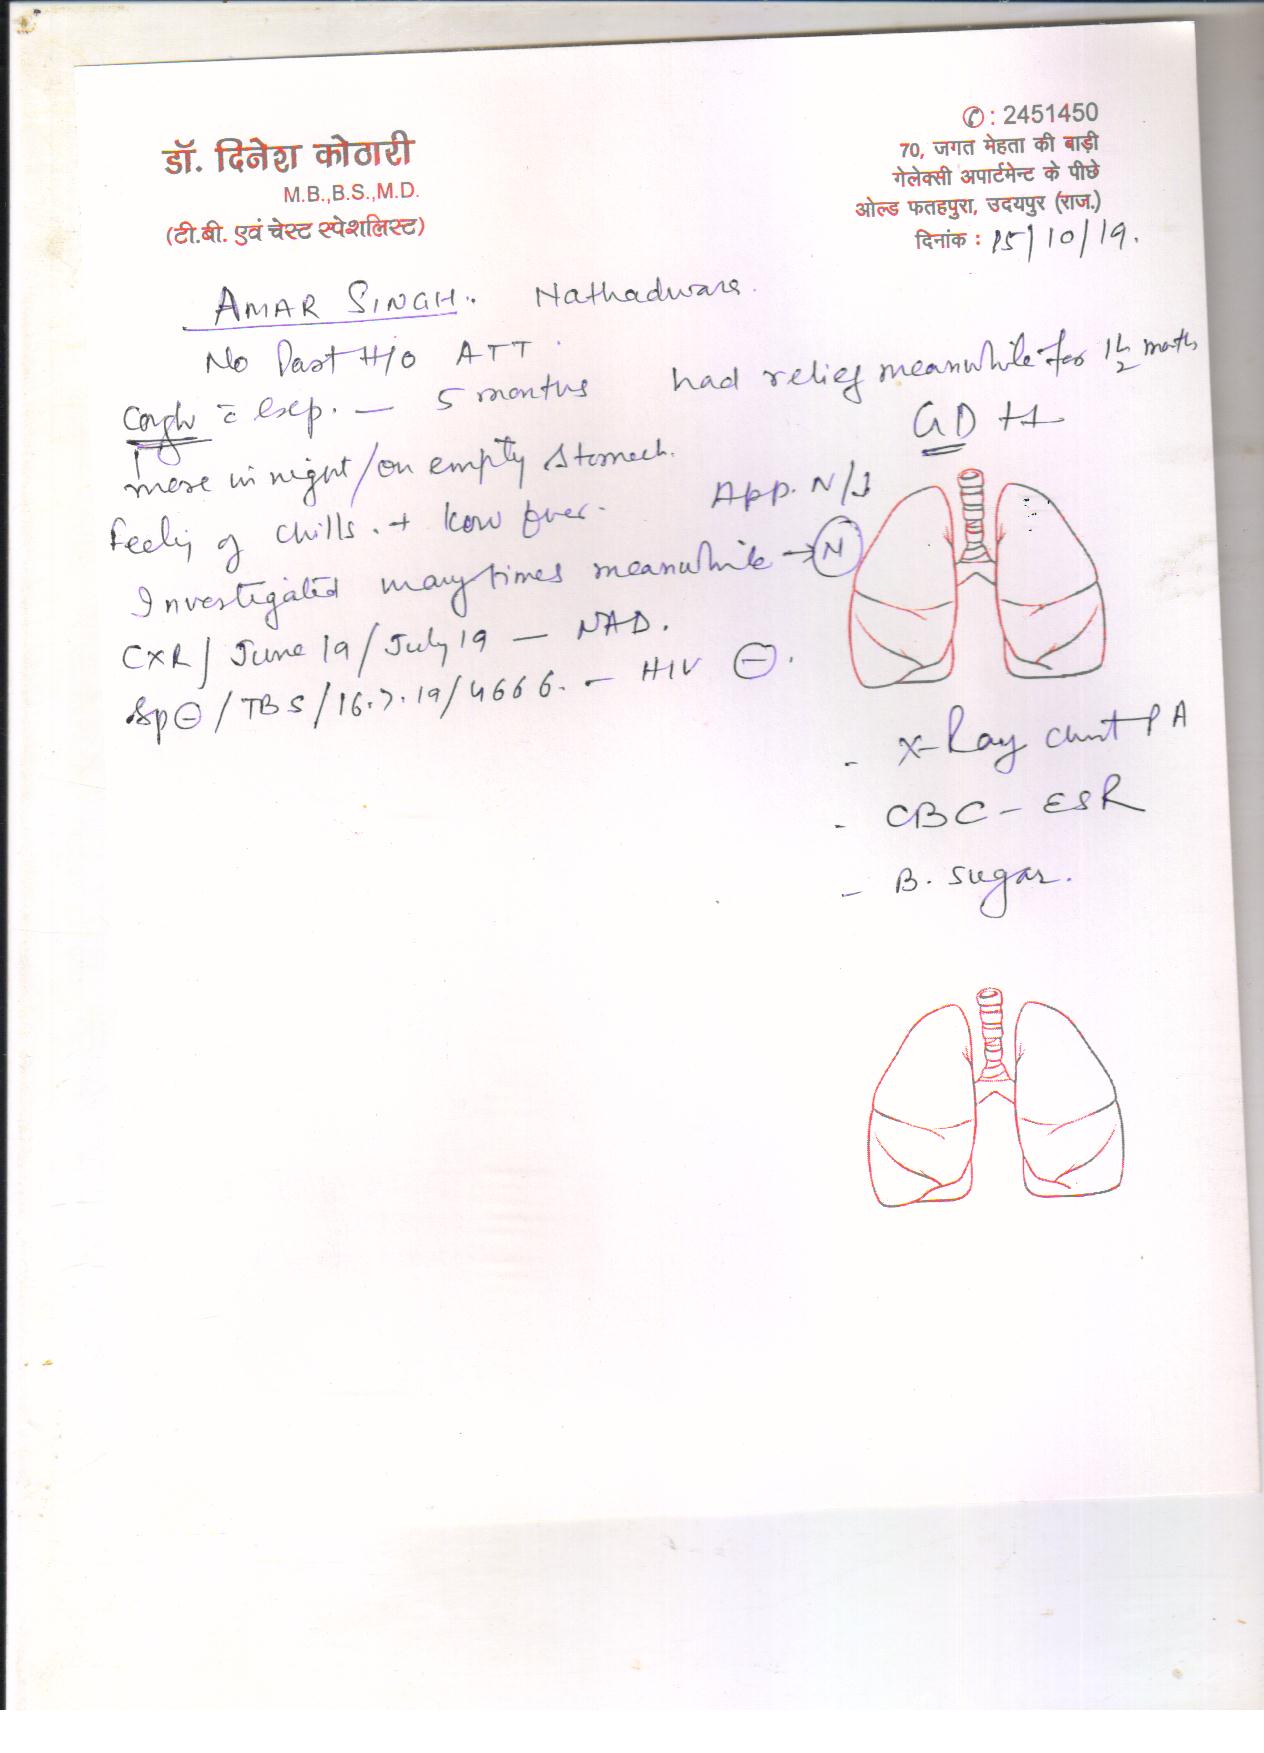 डॉ. दिनेश कोठारी
M.B.,B.S.,M.D.
(टी.बी. एवं चेस्ट स्पेशलिस्ट)
✆ : 2451450
70, जगत मेहता की बाड़ी
गेलेक्सी अपार्टमेन्ट के पीछे
ओल्ड फतहपुरा, उदयपुर (राज.)
दिनांक : 15/10/19.
AMAR SINGH. Nathadwara.
No Past H/O ATT.
Cough c̄ exp. — 5 months had relief meanwhile for 1½ month
GD ++
more in night/on empty stomach.
App. N/
Feeling of chills. +
Investigated many times meanwhile → N
CXR/June 19/July 19 — NAD.
Sp ⊖/TBS/16.7.19/4666. — HIV ⊖.
- X-Ray chest PA
- CBC - ESR
- B. Sugar.